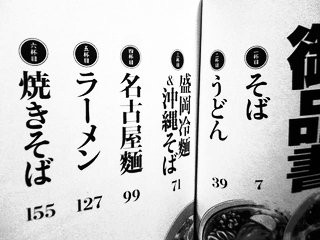 御品書
一杯目
そば
7
二杯目
うどん
39
三杯目
盛岡冷麺
&沖縄そば
71
四杯目
名古屋麺
99
五杯目
ラーメン
127
六杯目
焼きそば
155